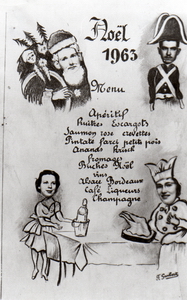 Noël
1963
Menu
Apéritif
Huîtres Escargots
Saumon rose crevettes
Pintade farci petits pois
Ananas Kirsch
fromages
Buches Noël
vins
Alsace Bordeaux
Café Liqueurs
Champagne